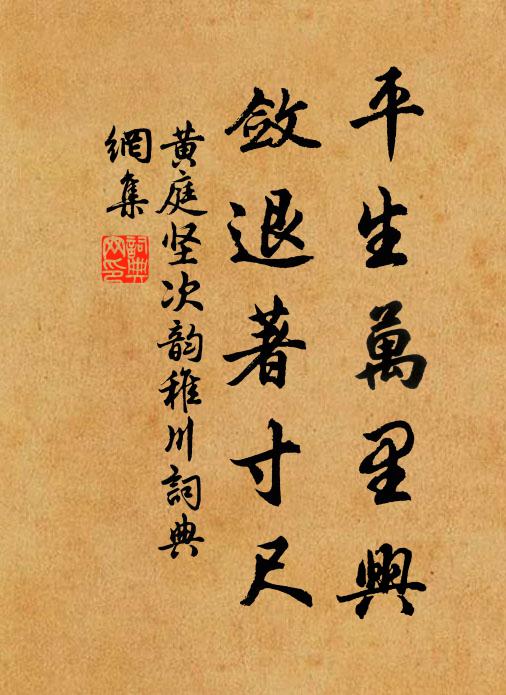 平生萬里興
斂退著寸尺
黃庭坚次韵稚川詞典
網集
詞典
网印